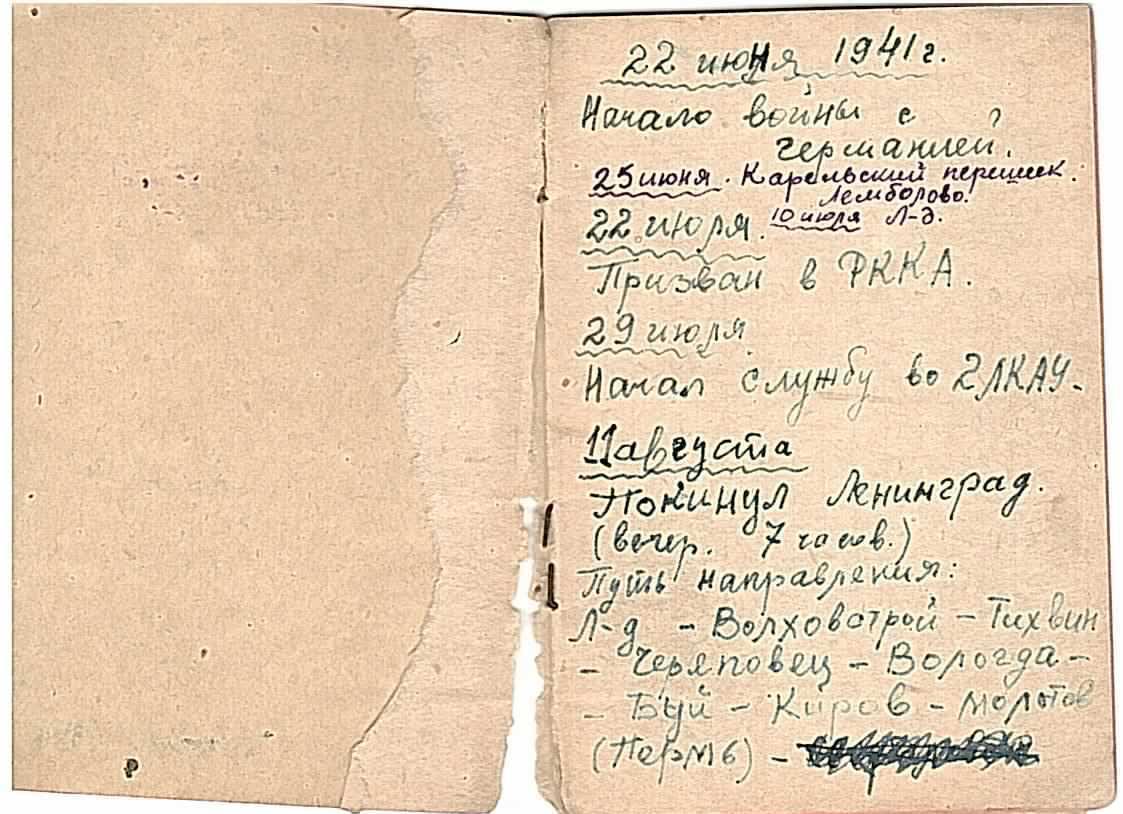 22 июня 1941 г.
Начало войны с
германией.
25 июня. Карельский перешеек.
Лемболово.
22 июля. 10 июля Л-д.
Призван в РККА.
29 июля.
Начал службу во 2 ЛКАУ.
11 августа
Покинул Ленинград.
(вечер. 7 часов.)
Путь направления:
Л-д - Волховстрой - Тихвин
- Череповец - Вологда -
- Буй - Киров - Молотов
(Пермь) -